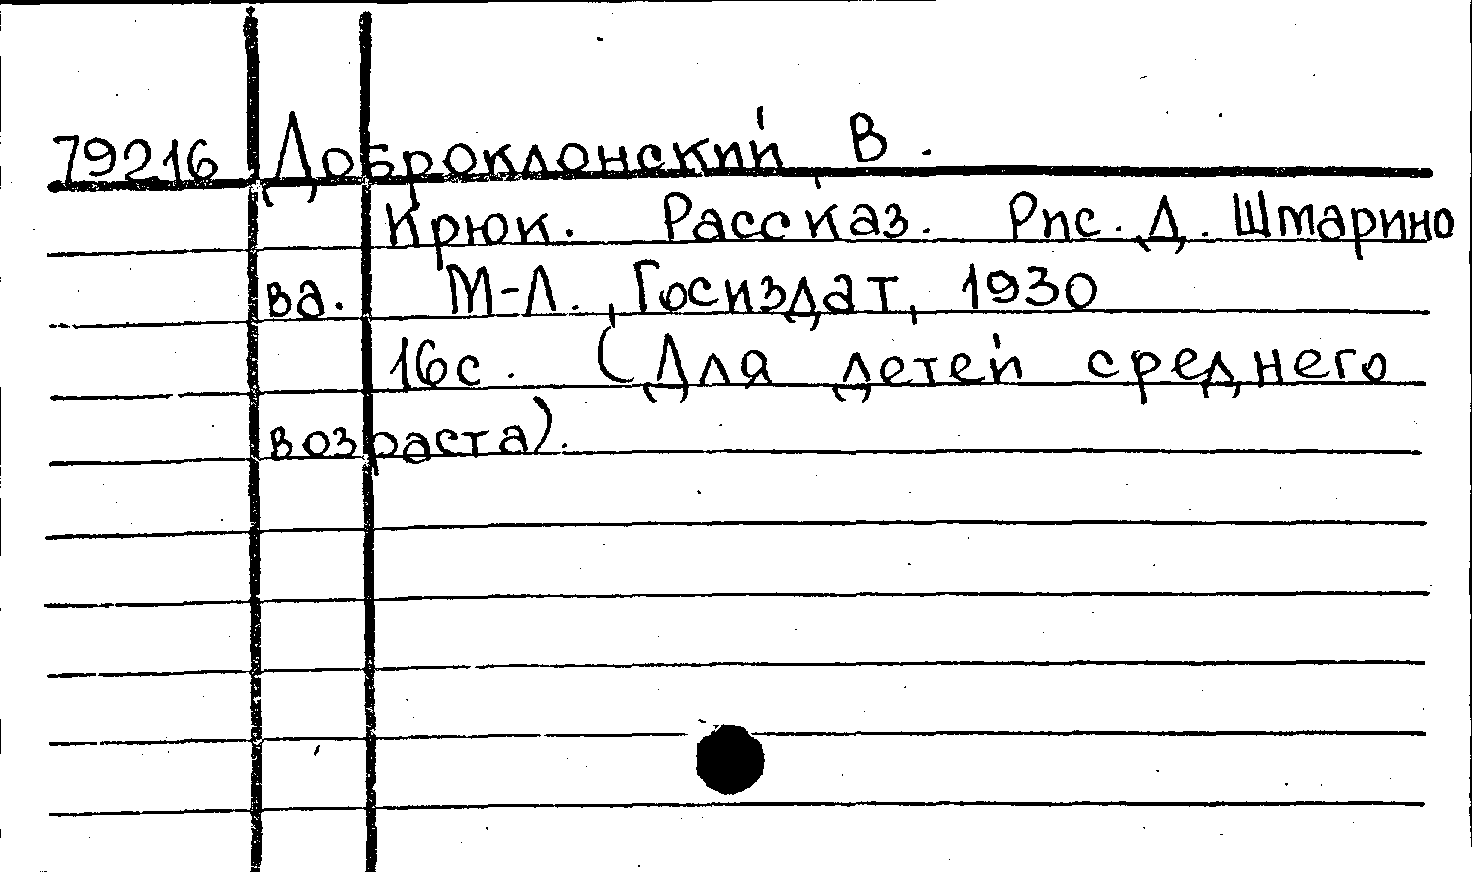 79216 Доброклонский В.
Крюк. Рассказ. Рис. Д. Штарино
ва. М-Л., Госиздат, 1930
16с. (Для детей среднего
возраста).